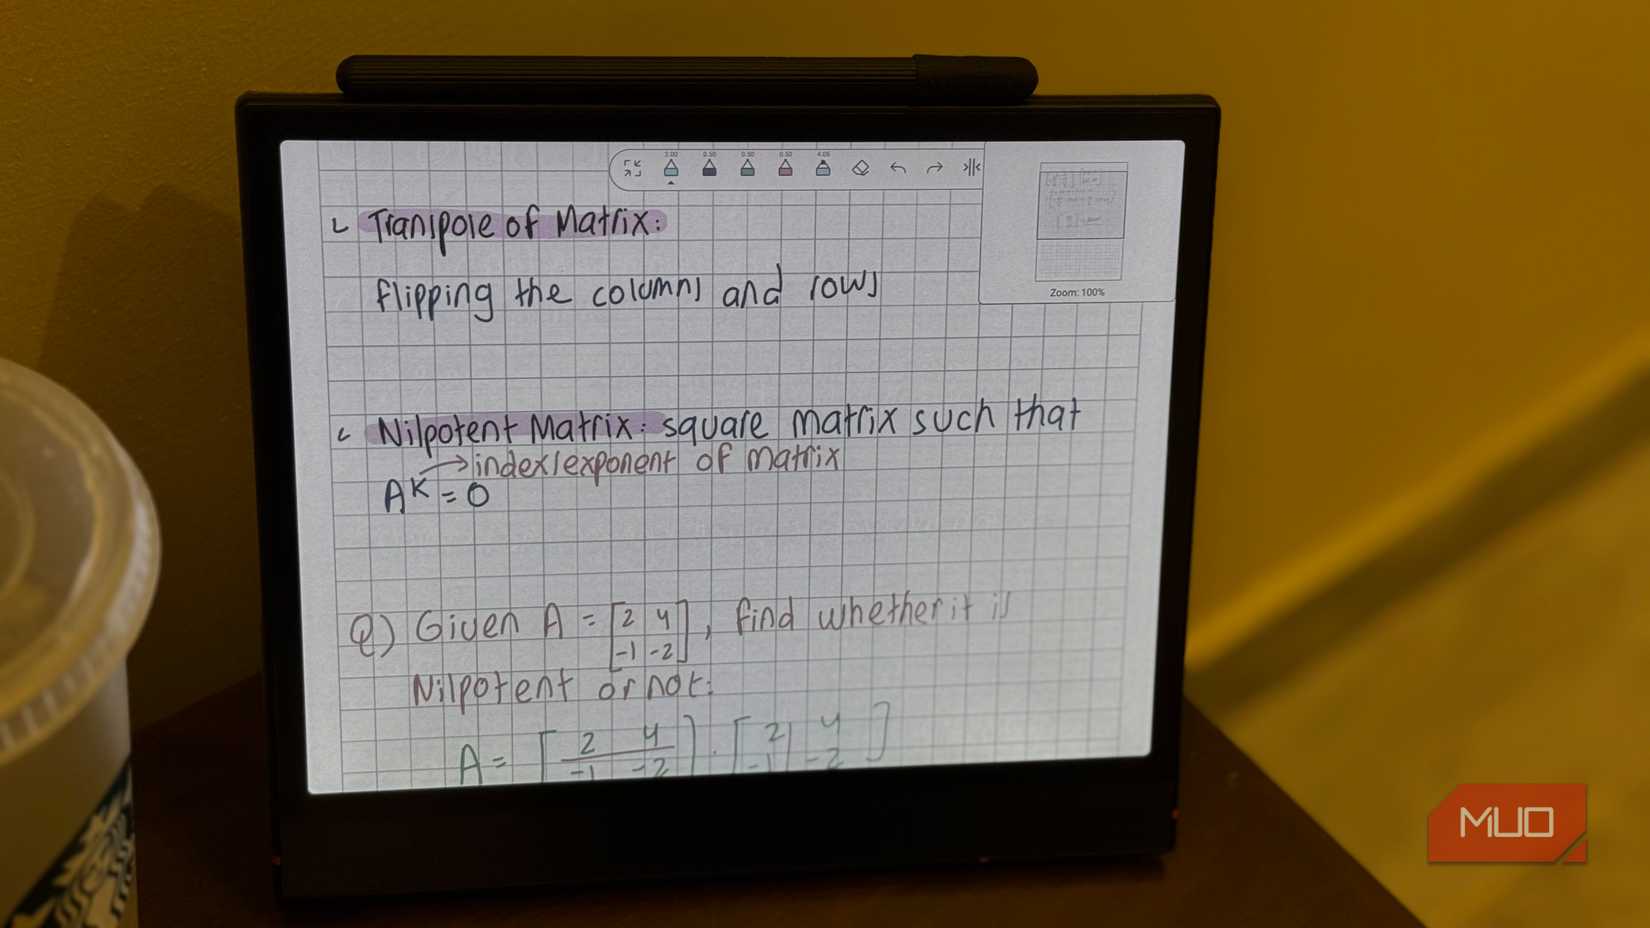 3.00 0.50 0.50 0.50 4.05
Transpose of Matrix:
flipping the columns and rows
Zoom: 100%
Nilpotent Matrix: square matrix such that
→ index/exponent of matrix
A^K = 0
Q) Given A = [2 4
-1 -2], find whether it is
Nilpotent or not:
A = [2 4 ] · [2 4 ]
-1 -2 -1 -2
MUO